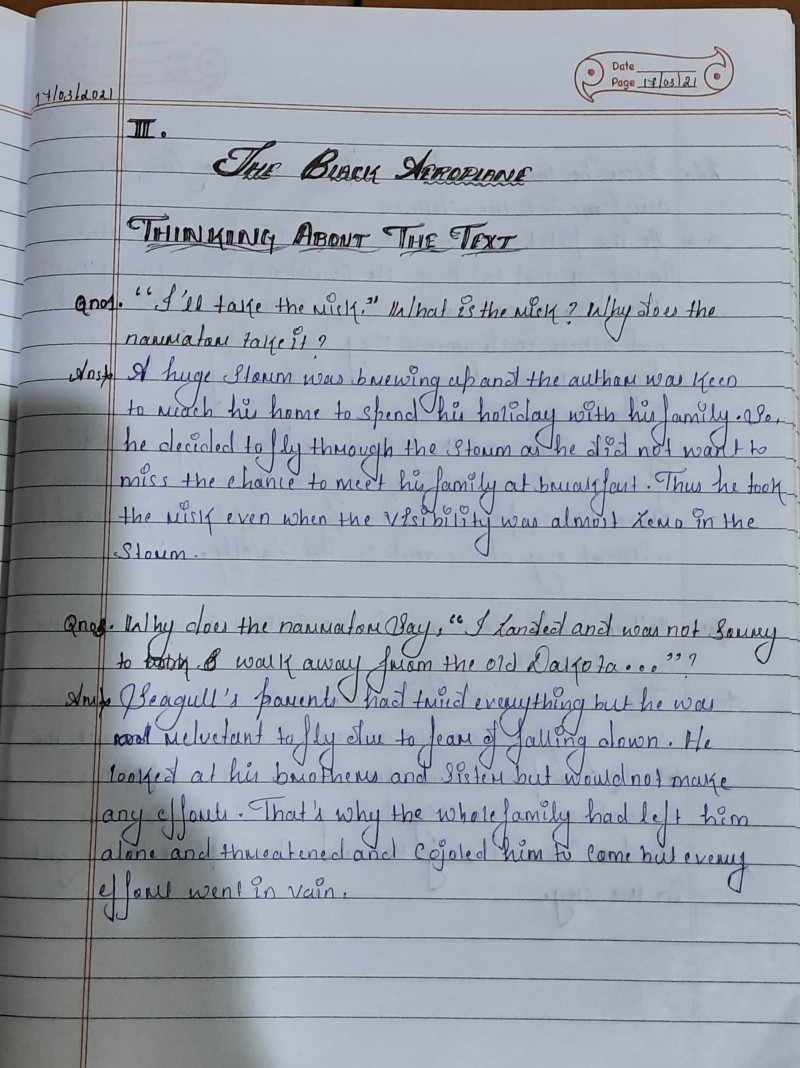 17/03/2021
Date
Page 17/03/21
III.
The Black Aeroplane
Thinking About The Text
Qno1. "I'll take the risk." What is the risk? Why does the
narrator take it?
Ans:- A huge storm was brewing up and the author was keen
to reach his home to spend his holiday with his family. So,
he decided to fly through the storm as he did not want to
miss the chance to meet his family at breakfast. Thus he took
the risk even when the visibility was almost zero in the
storm.
Qno2. Why does the narrator say, "I landed and was not sorry
to walk away from the old Dakota..."?
Ans:- Seagull's parents had tried everything but he was
reluctant to fly due to fear of falling down. He
looked at his brothers and sister but would not make
any efforts. That's why the whole family had left him
alone and threatened and cojoled him to come but every
effort went in vain.